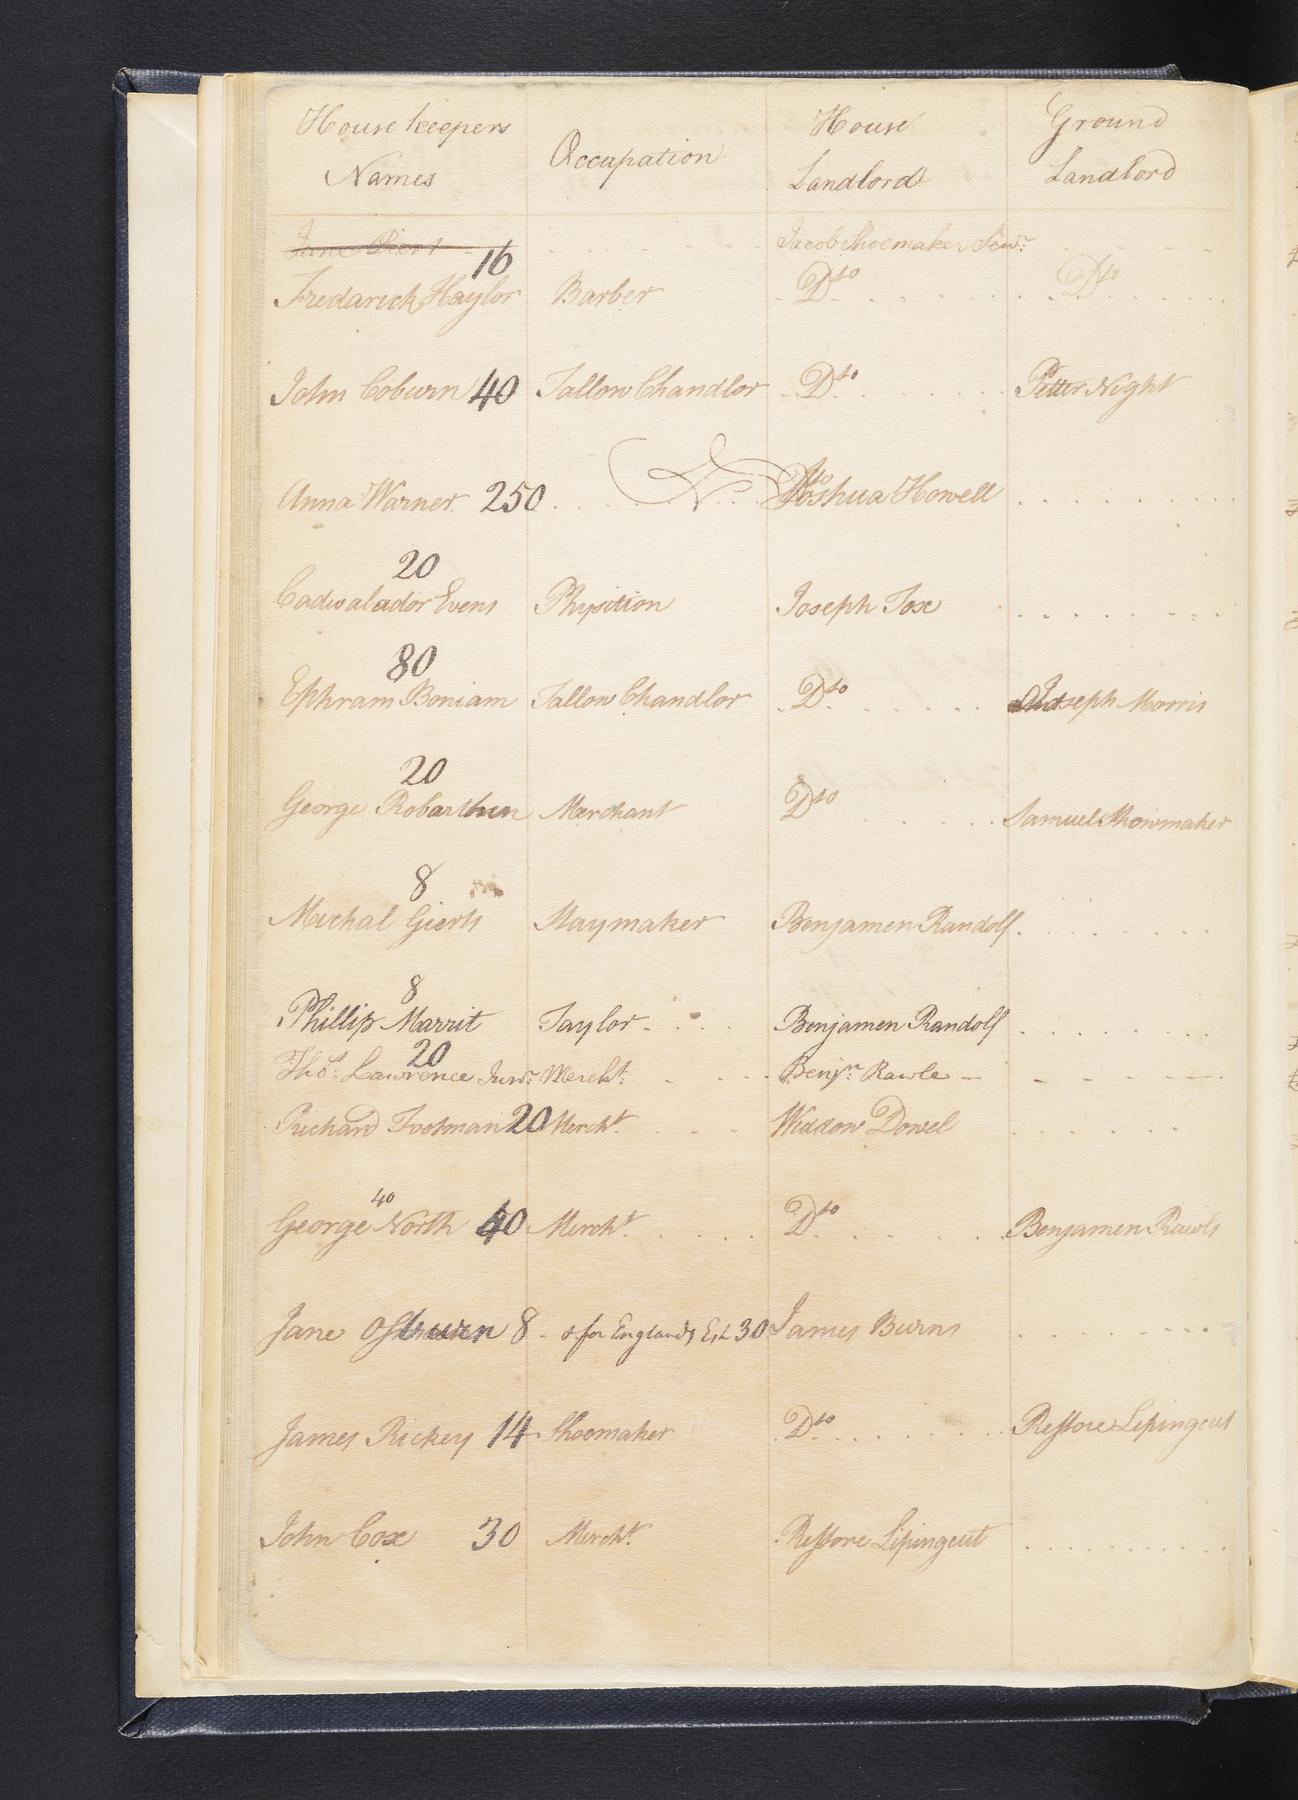 House keepers Names Occupation House Landlord Ground Landlord
Jane Jacob Shoemaker Senr.
Fredarick Haylor 16 Barber Dto Dto
John Coburn 40 Tallow Chandlor Dto Petter Night
Anna Warner 250 Joshua Howell
20
Cadwalador Evens Physition Joseph Fox
80
Ephram Boniam Tallow Chandlor Dto Joseph Morris
20
George Merchant Dto Samuel Showmaker
8
Michal Benjamen Randolf
8
Phillip Marrit Taylor Benjamen Randolf
20
Thos. Lawrence Junr. Mercht. Benjn. Rawle
Richard Footman 20 Mercht. Widdow Dowel
40
George North 40 Mercht. Dto Benjamen Rawls
Jane Osburn 8 - & for Englands Est 30 James Burns
James Rickey 14 Shoomaker Dto Restore Lipingcut
John Cox 30 Mercht. Restore Lipingcut